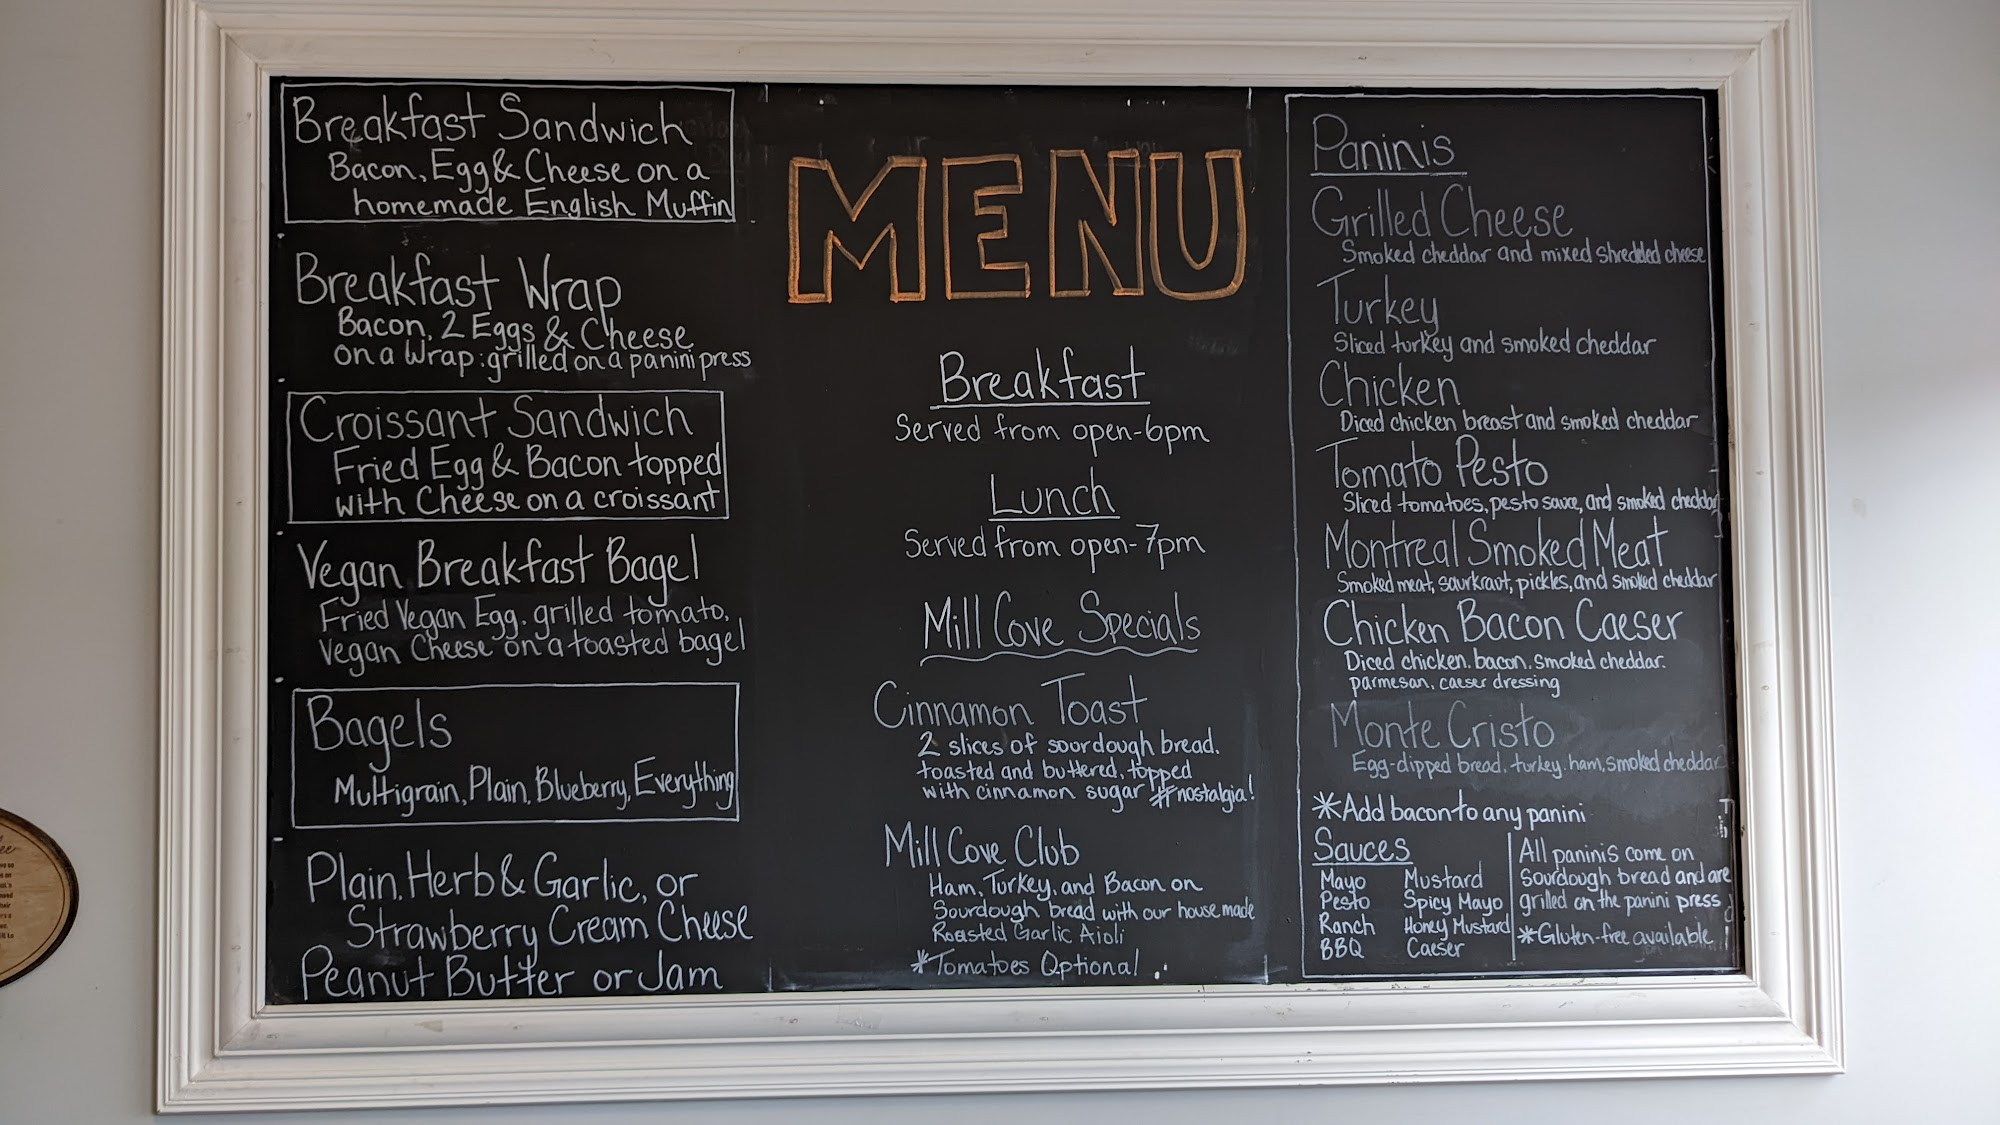 Breakfast Sandwich
Bacon, Egg & Cheese on a
homemade English Muffin
Breakfast Wrap
Bacon, 2 Eggs & Cheese
on a Wrap: grilled on a panini press
Croissant Sandwich
Fried Egg & Bacon topped
with Cheese on a croissant
Vegan Breakfast Bagel
Fried Vegan Egg, grilled tomato,
Vegan Cheese on a toasted bagel
Bagels
Multigrain, Plain, Blueberry, Everything
Plain, Herb & Garlic, or
Strawberry Cream Cheese
Peanut Butter or Jam
MENU
Breakfast
Served from open-6pm
Lunch
Served from open-7pm
Mill Cove Specials
Cinnamon Toast
2 slices of sourdough bread,
toasted and buttered, topped
with cinnamon sugar #nostalgia!
Mill Cove Club
Ham, Turkey, and Bacon on
Sourdough bread with our house made
Roasted Garlic Aioli
*Tomatoes Optional
Paninis
Grilled Cheese
Smoked cheddar and mixed shredded cheese
Turkey
Sliced turkey and smoked cheddar
Chicken
Diced chicken breast and smoked cheddar
Tomato Pesto
Sliced tomatoes, pesto sauce, and smoked cheddar
Montreal Smoked Meat
Smoked meat, saurkraut, pickles, and smoked cheddar
Chicken Bacon Caeser
Diced chicken, bacon, smoked cheddar,
parmesan, caeser dressing
Monte Cristo
Egg-dipped bread, turkey, ham, smoked cheddar
*Add bacon to any panini
Sauces
Mayo Mustard
Pesto Spicy Mayo
Ranch Honey Mustard
BBQ Caeser
All paninis come on
Sourdough bread and are
grilled on the panini press
*Gluten-free available